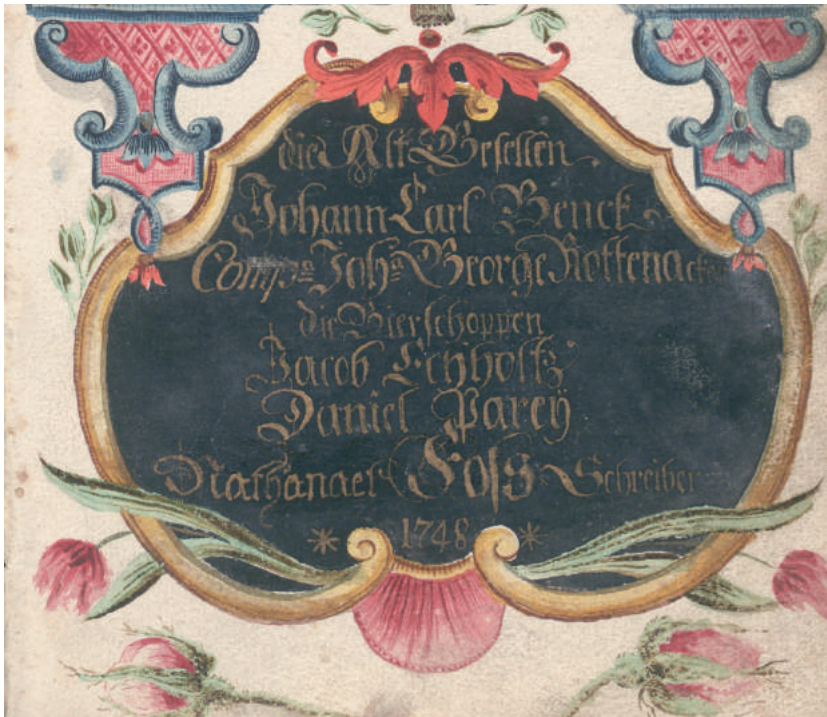 die Alt Gesellen
Johann Carl Benck
Comp. Joh. George Rottenacker
die Bierschoppen
Jacob Echholtz
Daniel Pareÿ
Nathanael Foſs Schreiber
* 1748 *